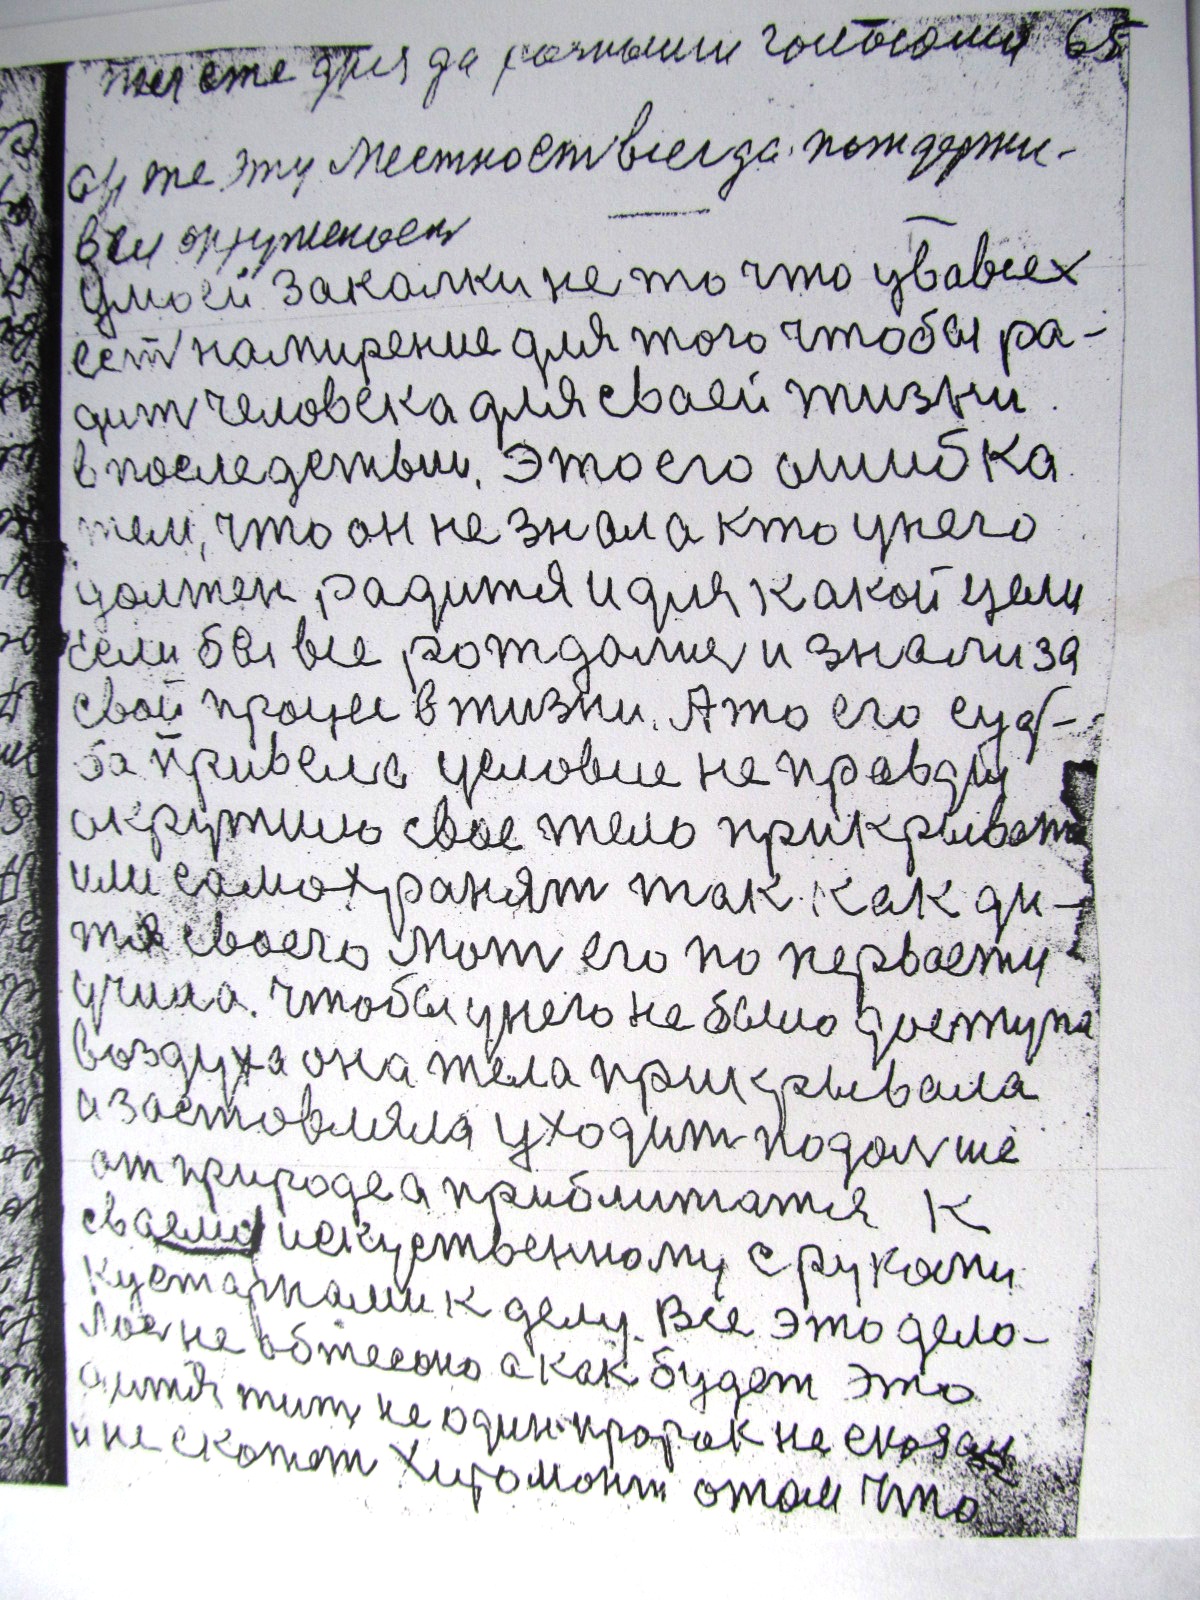 для да разными 65
же эту местност всегда поддержи-
вал
умоей закалки не то что увавсех
ест намирение для того чтобы ра-
дит человека для сваей жизни
впоследствии. Это его ошибка
тем, что он не знал а кто унего
должен радится и для какой цели
если бы все рождались и знали за
свой процес в жизни. А то его суд-
ба привела условие не правду
окружило свое тело прикриват
или самохранят так как ди-
тя своего мат его по первасти
учила. чтобы унего не было доступа
воздуха она тела прикрывала
и застовляла уходит подальше
от природе а приближатся к
сваему искуственному с руками
кустарнами к делу. Все это дела-
лос не обтесано а как будет это
дитя жит не один прорак не сказал
и не скажет хиромант отом что